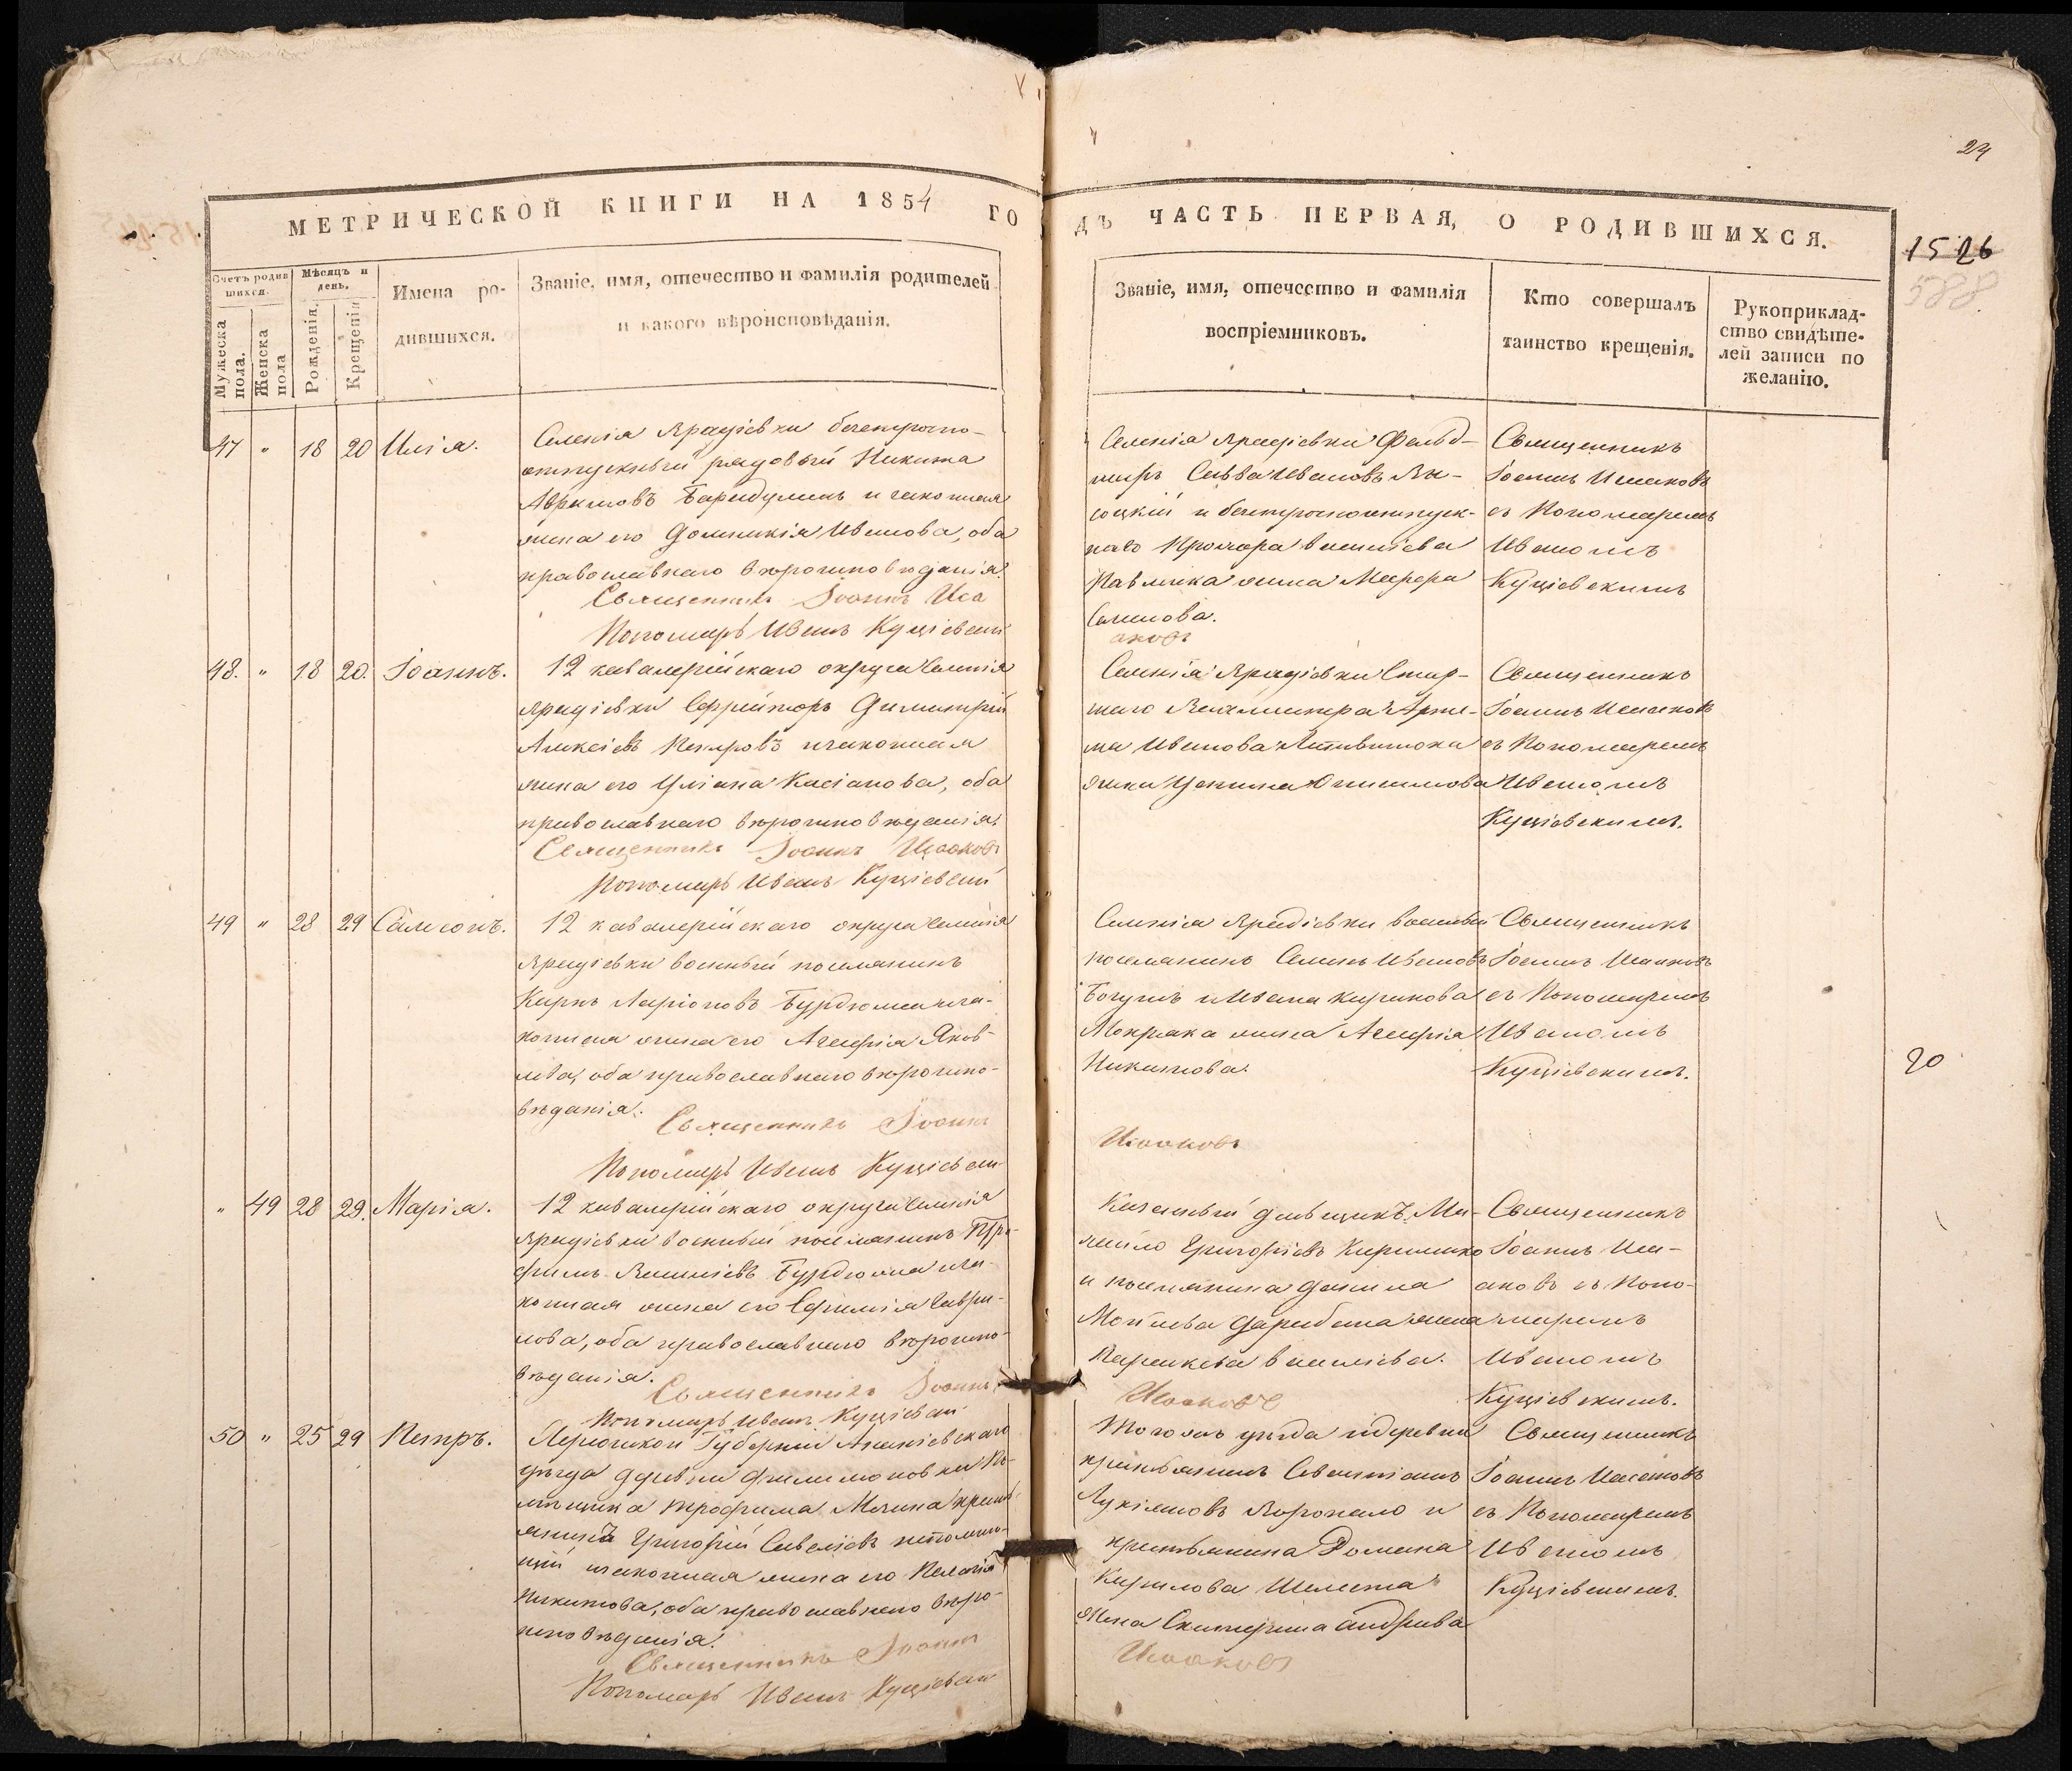 24
МЕТРИЧЕСКОЙ КНИГИ НА 1854 ГО
ДЪ ЧАСТЬ ПЕРВАЯ, О РОДИВШИХСЯ.
1526
588
Счетъ родив
шихся.
Мѣсяцъ и
день.
Мужеска
пола.
Женска
пола
Рожденія.
Крещенія
Имена ро-
дившихся.
Званіе, имя, отечество и фамилія родителей
и какого вѣроисповѣданія.
Званіе, имя, отечество и фамилія
воспріемниковъ.
Кто совершалъ
таинство крещенія.
Рукоприклад-
ство свидѣте-
лей записи по
желанію.
47 " 18 20 Илія.
Селенія безсрочно-
отпускный рядовый Никита
и законная
жена его Домникія Иванова, оба
православнаго вѣроисповѣданія.
Священникъ Іоаннъ Иса
Пономарь Иванъ Куціевскій
Селенія Фельд-
шеръ Савва Ивановъ Вы-
соцкій и безсрочноотпуск-
наго Прохора Василіева
Павлика жена
Семенова.
аковъ
Священникъ
Іоаннъ Исааковъ
съ Пономаремъ
Иваномъ
Куціевскимъ
48. " 18 20. Іоаннъ.
12 кавалерійскаго округа Селенія
Ефрейторъ Димитрій
Алексіевъ и законная
жена его Уліана Касіанова, оба
православнаго вѣроисповѣданія.
Священникъ Іоаннъ Исааковъ
Пономарь Иванъ Куціевскій
Селенія Стар-
шаго Вахмистра Арте-
ма Иванова Литвинока
жена
Священникъ
Іоаннъ Исааковъ
съ Пономаремъ
Иваномъ
Куціевскимъ.
49 " 28 29 Самсонъ.
12 кавалерійскаго округа Селенія
военный поселянинъ
Карпъ Ларіоновъ Бурдюжа и за-
конная жена его Агафія Яков-
лева, оба православнаго вѣроиспо-
вѣданія.
Священникъ Іоаннъ
Пономарь Иванъ Куціевскій
Селенія военный
поселянинъ Семенъ Ивановъ
Богушъ и Ивана Кирикова
Мокряка жена Агафія
Никитова.
Исааковъ
Священникъ
Іоаннъ Исааковъ
съ Пономаремъ
Иваномъ
Куціевскимъ.
20
" 49 28 29. Марія.
12 кавалерійскаго округа Селенія
военный поселянинъ Тро-
фимъ Василіевъ Бурдюжа и за-
конная жена его Ефимія Гаври-
лова, оба православнаго вѣроиспо-
вѣданія.
Священникъ Іоаннъ
Пономарь Иванъ Куціевскій
Казенный Ми-
хайло Григоріевъ Кириленко
и поселянина Данила
Мойсѣева жена
Параскева Василіева.
Исааковъ
Священникъ
Іоаннъ Иса-
аковъ съ Поно-
маремъ
Иваномъ
Куціевскимъ.
50 " 25 29 Петръ.
Херсонской Губерніи Ананіевскаго
уѣзда деревни Филимоновки По-
мѣщика Трофима кресть-
янинъ Григорій Савеліевъ
и законная жена его Пелагія
Никитова, оба православнаго вѣро-
исповѣданія.
Священникъ Іоаннъ
Пономарь Иванъ Куціевскій
Тогожъ уѣзда и деревни
крестьянинъ Севастіанъ
Лукіановъ и
крестьянина Романа
Кирилова Шелеста
жена Екатерина Андреева
Исааковъ
Священникъ
Іоаннъ Исааковъ
съ Пономаремъ
Иваномъ
Куціевскимъ.